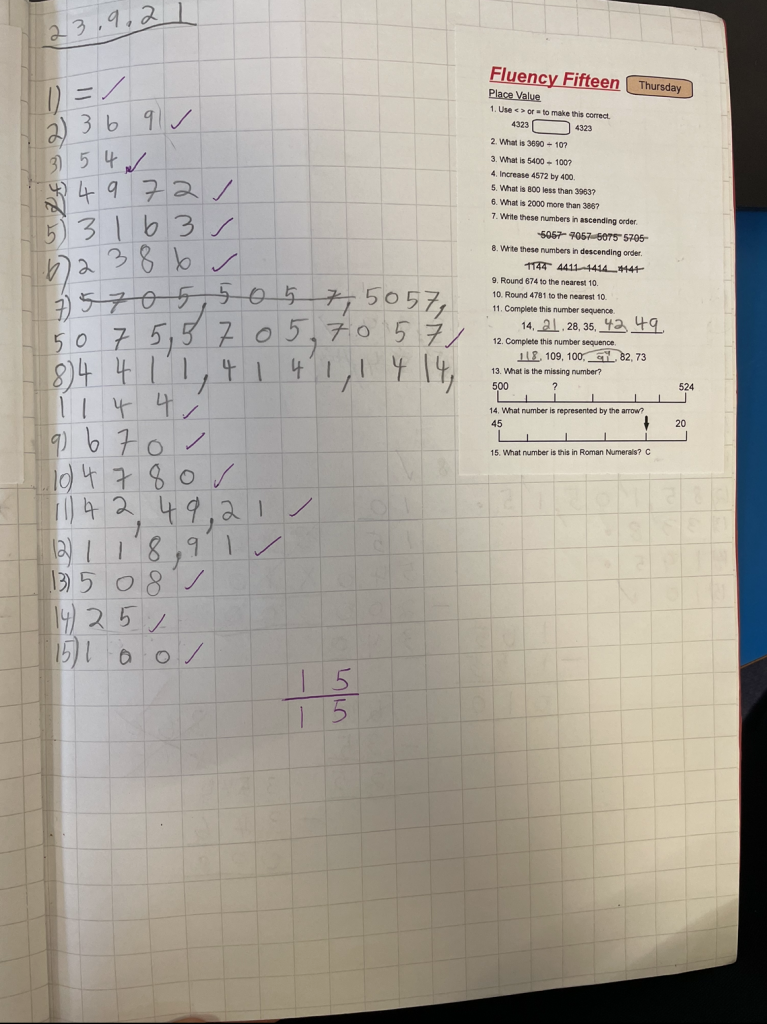 23.9.21
1) = ✓
2) 3 6 9 ✓
3) 5 4 ✓
4) 4 9 7 2 ✓
5) 3 1 6 3 ✓
6) 2 3 8 6 ✓
7) 5 7 0 5, 5 0 5 7, 5057,
5 0 7 5, 5 7 0 5, 7 0 5 7 ✓
8) 4 4 1 1, 4 1 4 1, 1 4 1 4,
1 1 4 4 ✓
9) 6 7 0 ✓
10) 4 7 8 0 ✓
11) 4 2, 4 9, 2 1 ✓
12) 1 1 8, 9 1 ✓
13) 5 0 8 ✓
14) 2 5 ✓
15) 1 0 0 ✓
1 5
1 5
Fluency Fifteen Thursday
Place Value
1. Use < > or = to make this correct.
4323 4323
2. What is 3690 ÷ 10?
3. What is 5400 ÷ 100?
4. Increase 4572 by 400.
5. What is 800 less than 3963?
6. What is 2000 more than 386?
7. Write these numbers in ascending order.
5057 7057 5075 5705
8. Write these numbers in descending order.
1144 4411 1414 4141
9. Round 674 to the nearest 10.
10. Round 4781 to the nearest 10.
11. Complete this number sequence.
14, 21, 28, 35, 42 49.
12. Complete this number sequence.
118, 109, 100, 91, 82, 73
13. What is the missing number?
500 ? 524
14. What number is represented by the arrow?
45 20
15. What number is this in Roman Numerals? C